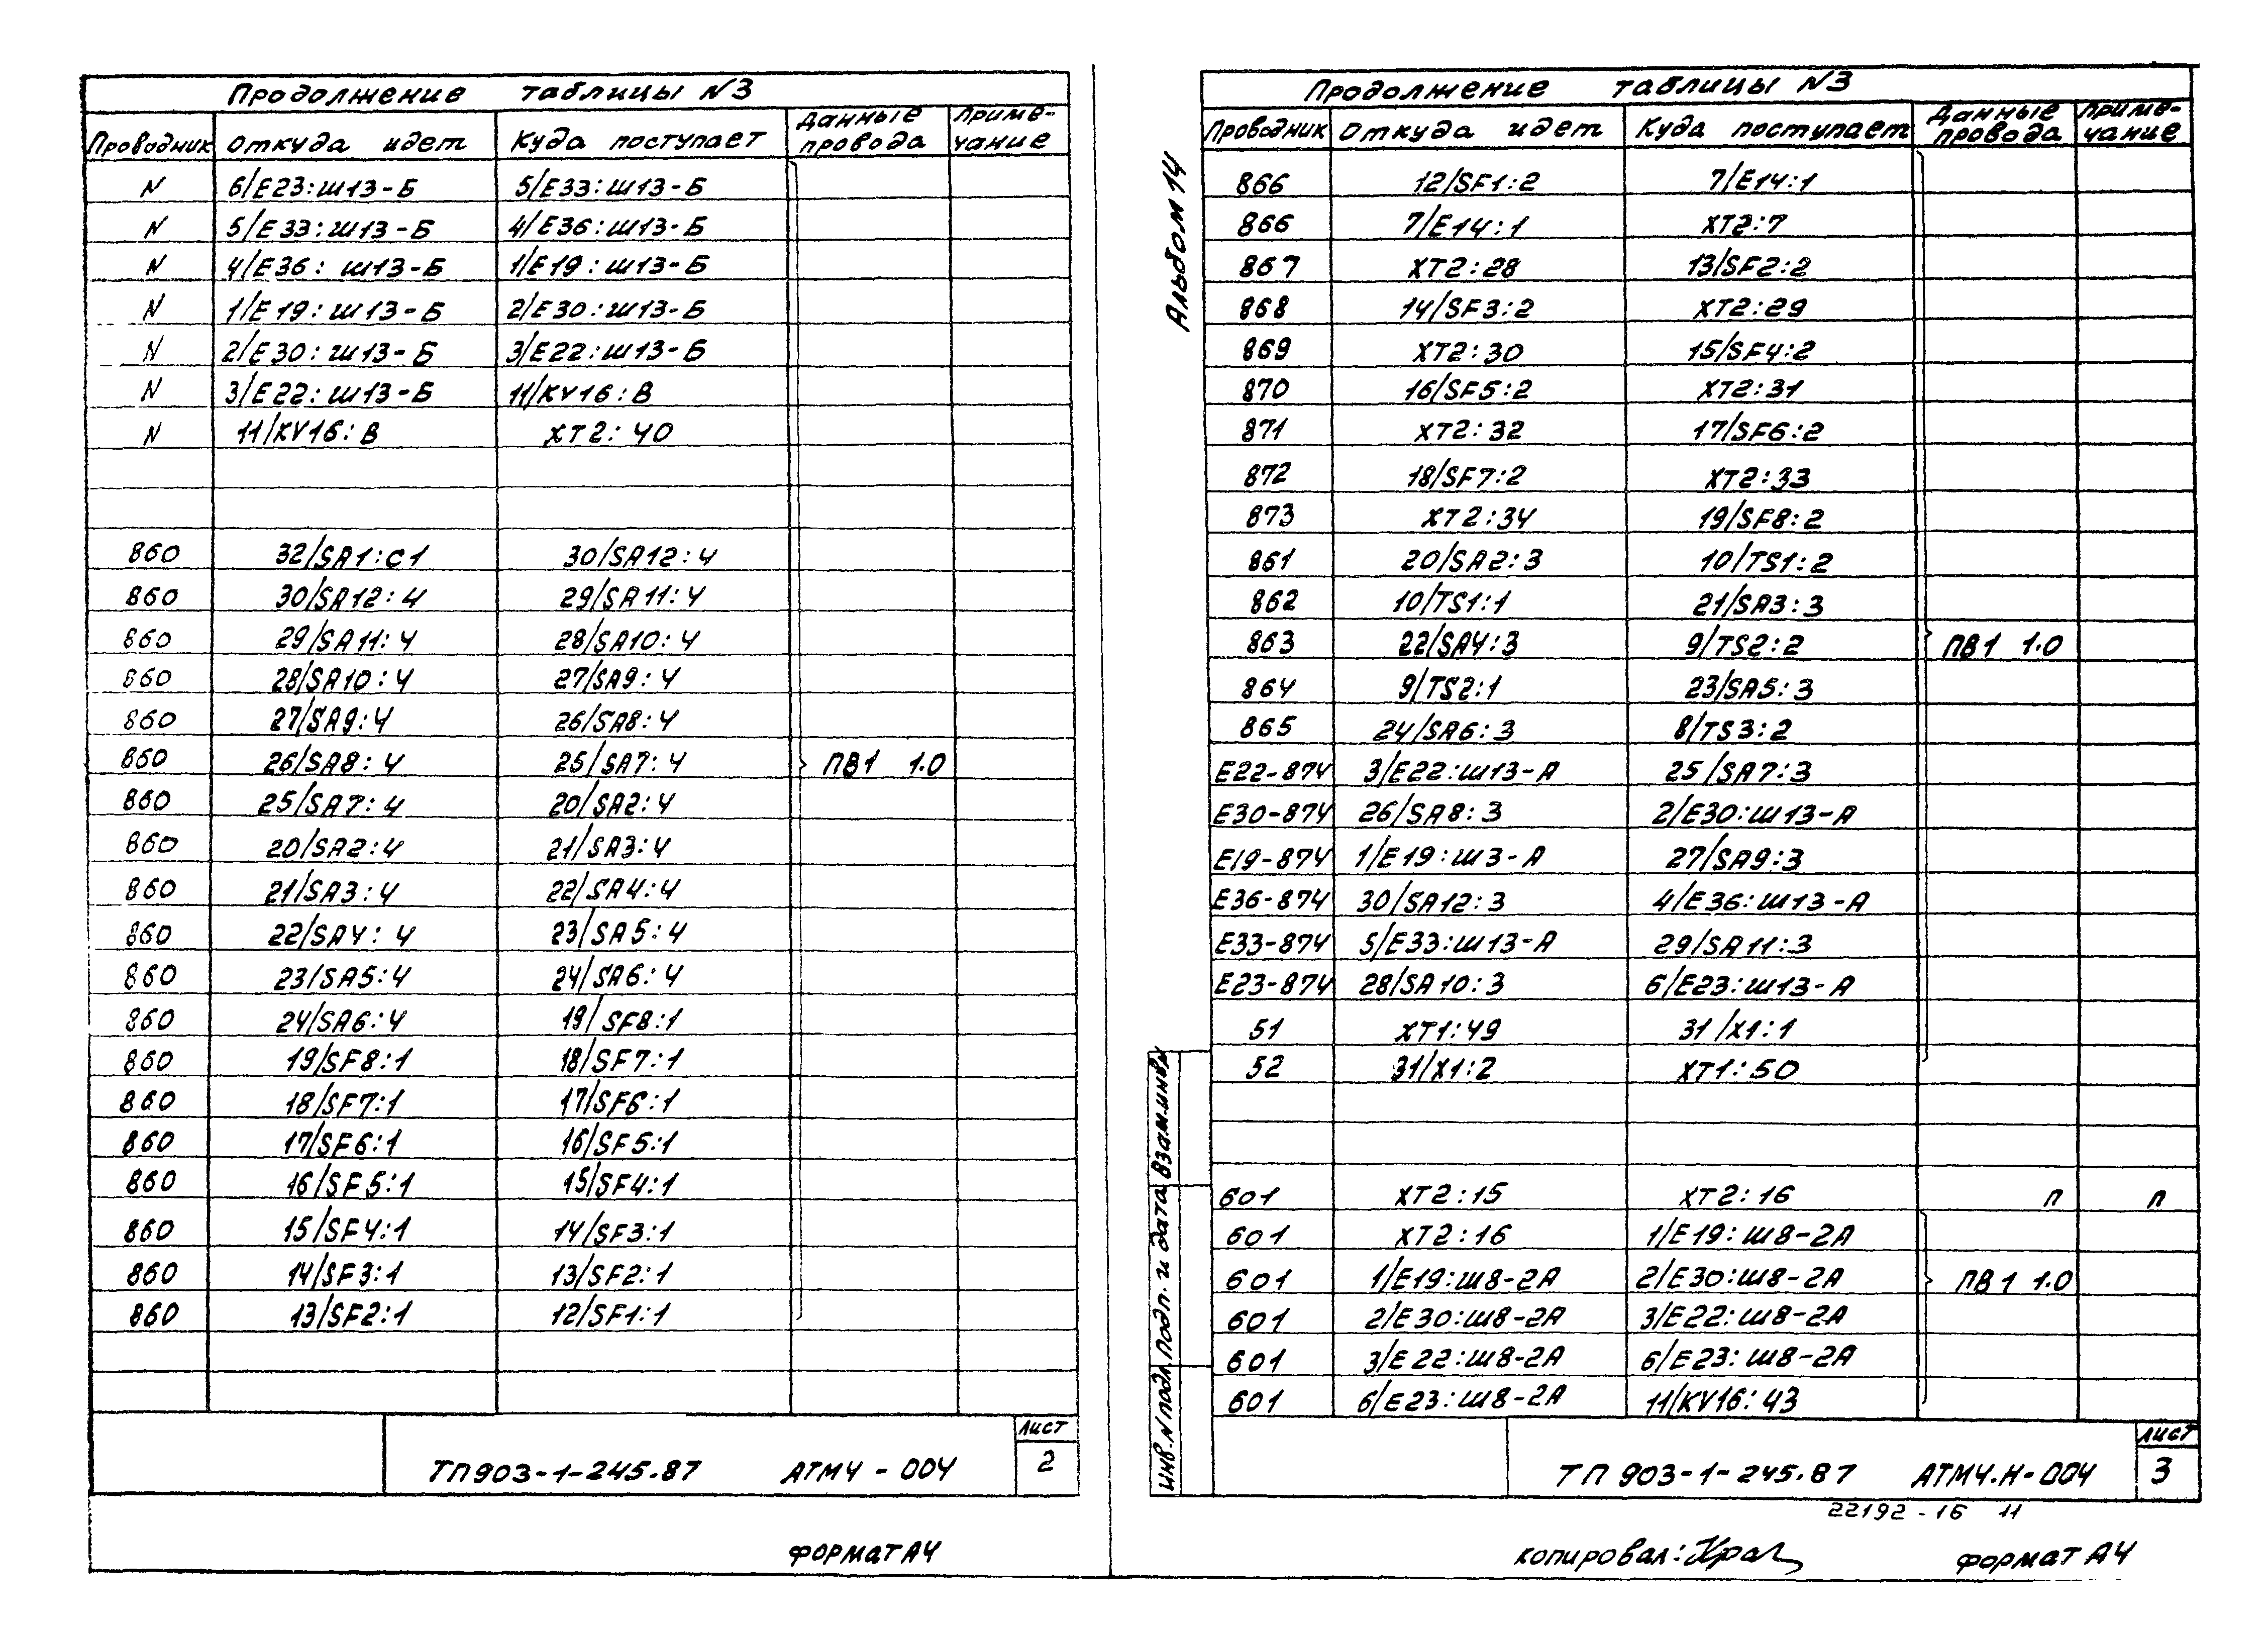 Продолжение таблицы N3
Проводник Откуда идет Куда поступает Данные провода Примечание
N 6/E23:Ш13-Б 5/E33:Ш13-Б
N 5/E33:Ш13-Б 4/E36:Ш13-Б
N 4/E36: Ш13-Б 1/E19:Ш13-Б
N 1/E19:Ш13-Б 2/E30:Ш13-Б
N 2/E30:Ш13-Б 3/E22:Ш13-Б
N 3/E22:Ш13-Б 11/KV16:В
N 11/KV16:В XT2:40
860 32/SA1:C1 30/SA12:4
860 30/SA12:4 29/SA11:4
860 29/SA11:4 28/SA10:4
860 28/SA10:4 27/SA9:4
860 27/SA9:4 26/SA8:4
860 26/SA8:4 25/SA7:4 ПВ1 1.0
860 25/SA7:4 20/SA2:4
860 20/SA2:4 21/SA3:4
860 21/SA3:4 22/SA4:4
860 22/SA4:4 23/SA5:4
860 23/SA5:4 24/SA6:4
860 24/SA6:4 19/SF8:1
860 19/SF8:1 18/SF7:1
860 18/SF7:1 17/SF6:1
860 17/SF6:1 16/SF5:1
860 16/SF5:1 15/SF4:1
860 15/SF4:1 14/SF3:1
860 14/SF3:1 13/SF2:1
860 13/SF2:1 12/SF1:1
ТП903-1-245.87 АТМ4-004
Лист
2
Формат А4
Альбом 14
Продолжение таблицы N3
Проводник Откуда идет Куда поступает Данные провода Примечание
866 12/SF1:2 7/E14:1
866 7/E14:1 XT2:7
867 XT2:28 13/SF2:2
868 14/SF3:2 XT2:29
869 XT2:30 15/SF4:2
870 16/SF5:2 XT2:31
871 XT2:32 17/SF6:2
872 18/SF7:2 XT2:33
873 XT2:34 19/SF8:2
861 20/SA2:3 10/TS1:2
862 10/TS1:1 21/SA3:3
863 22/SA4:3 9/TS2:2 ПВ1 1.0
864 9/TS2:1 23/SA5:3
865 24/SA6:3 8/TS3:2
E22-874 3/E22:Ш13-А 25/SA7:3
E30-874 26/SA8:3 2/E30:Ш13-А
E19-874 1/E19:Ш3-А 27/SA9:3
E36-874 30/SA12:3 4/E36:Ш13-А
E33-874 5/E33:Ш13-А 29/SA11:3
E23-874 28/SA10:3 6/E23:Ш13-А
51 XT1:49 31/X1:1
52 31/X1:2 XT1:50
601 XT2:15 XT2:16 п п
601 XT2:16 1/E19:Ш8-2А
601 1/E19:Ш8-2А 2/E30:Ш8-2А ПВ1 1.0
601 2/E30:Ш8-2А 3/E22:Ш8-2А
601 3/E22:Ш8-2А 6/E23:Ш8-2А
601 6/E23:Ш8-2А 11/KV16:43
Инв.N подл. Подп. и дата Взам.инв.N
ТП 903-1-245.87 АТМ4.Н-004
Лист
3
22192-16 11
копировал: Формат А4